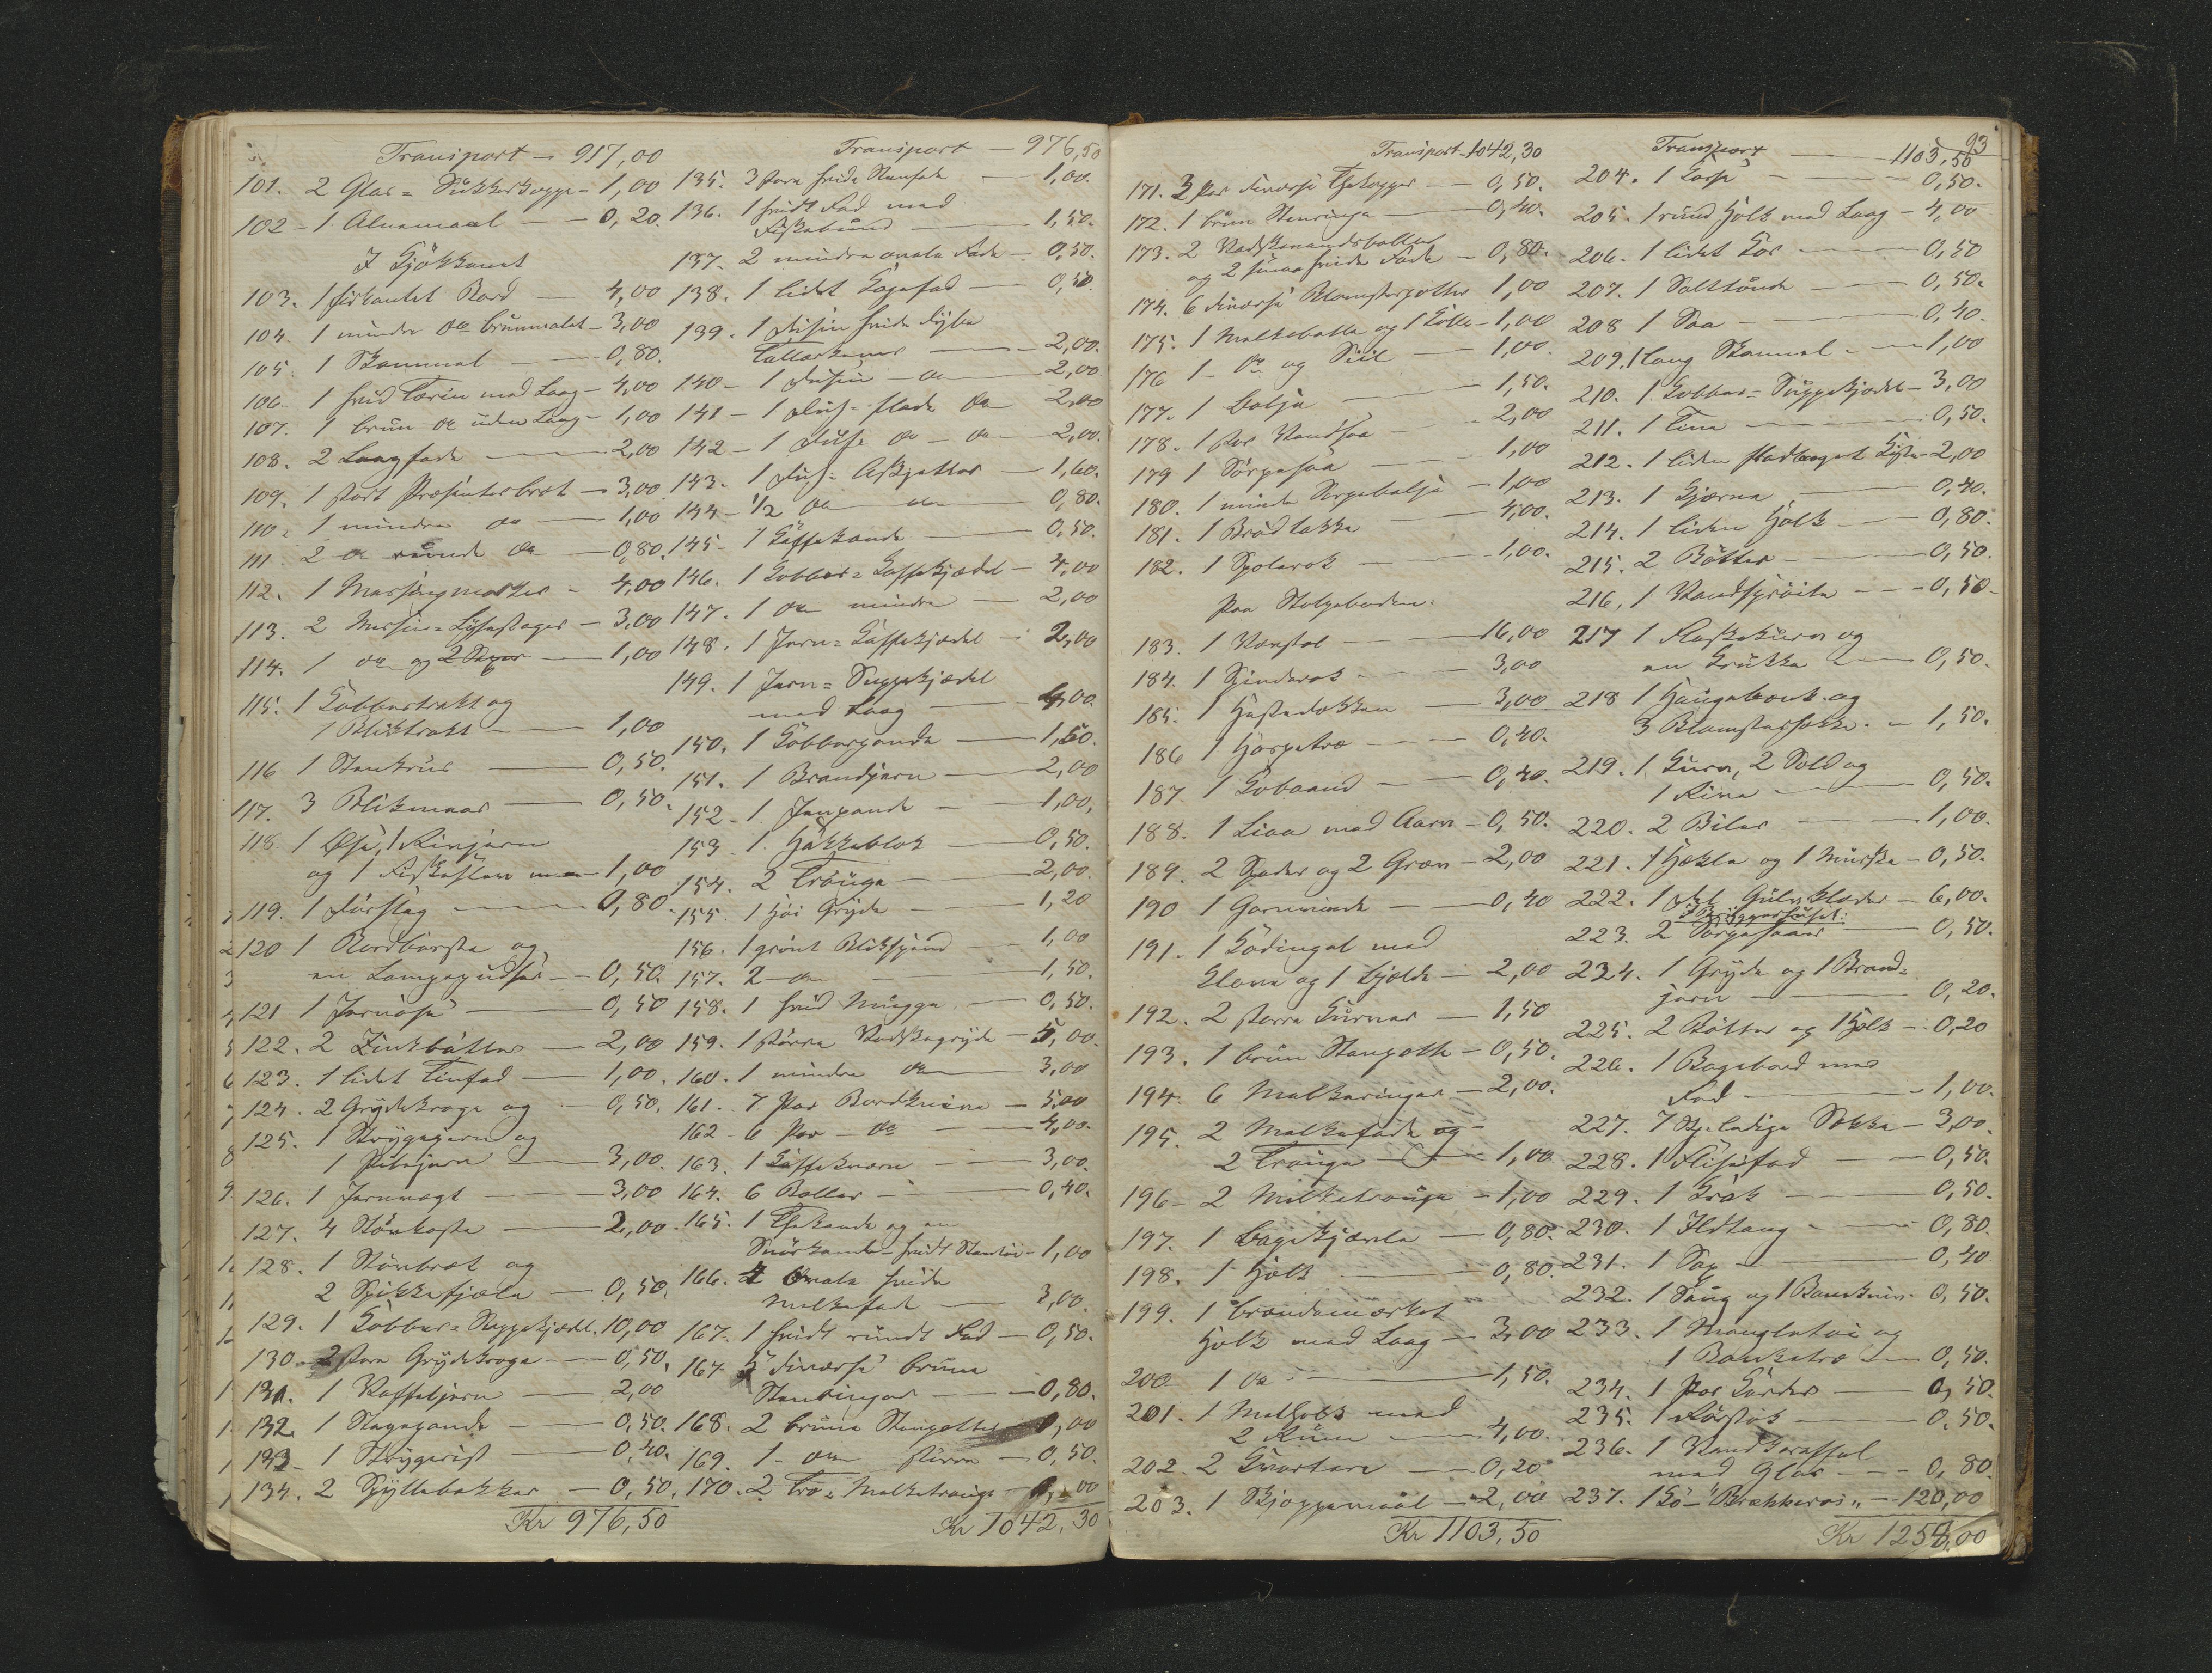 Transport - 917,00
101. 2 Glas = Sukkerkoppe - 1,00
102 - 1 Alnemaal - 0,20.
I Kjökkenet
103. 1 firkantet Bord - 4,00
104. 1 mindre do brunmalet - 3,00
105. 1 Skammel - 0,80.
106. 1 hvid Terin med Laag - 4,00
107. 1 brun do uden Laag - 1,00
108. 2 Laagfade - 2,00
109. 1 stort Præsenterbret - 3,00
110. 1 mindre do - 1,00
111. 2 do runde do - 0,80.
112. 1 Messingmorter - 4,00
113. 2 Messing = Lysestager - 3,00
114. 1 do og 2 Saxer - 1,00
115. 1 Kobbertrakt og
1 Bliktrakt - 1,00
116 1 Stenkrus - 0,50.
117. 3 Blikmaar - 0,50.
118. 1 Øse, 1 Rivjern
og 1 - 1,00
119. 1 Dørslag - 0,80.
120 1 Bordbørste og
en Lampepudser - 0,50.
121 1 Jernöse - 0,50
122. 2 Zinkbötter - 2,00
123. 1 lidet Tinfad - 1,00.
124. 2 Grydekroge og - 0,50.
125. 1 Strygejern og
1 Pibejern - 3,00.
126. 1 Jernvægt - 3,00
127. 4 - 2,00.
128. 1 og
2 Spikkefjæle - 0,50.
129. 1 Kobber = Suppekjedel. 10,00
130. 2 store Grydekroge - 0,50.
131. 1 Vaffeljern - 2,00
132. 1 Stegepande - 0,50.
133 - 1 Strygerist - 0,40.
134. 2 Spyttebakker - 0,50.
Kr 976,50
Transport - 976,50
135. 3 store hvide Stenfade - 1,00.
136. 1 hvidt Fad med
Fiskebund - 1,50.
137. 2 mindre ovale Fade - 0,50.
138. 1 lidet Kagefad - 0,50.
139. 1 Dusin hvide dybe
Tallerkener - 2,00.
140 - 1 Dusin - do - 2,00
141 - 1 Dus = flade do 2,00
142 - 1 Duse do - do - 2,00.
143. 1 Dus = Askjetter - 1,60.
144 - 1/2 do - do - 0,80.
145 - 1 Kaffekande - 0,50.
146. 1 Kobber = Kaffekjedel - 4,00
147. 1 do mindre - 2,00
148. 1 Jern = Kaffekjedel - 2,00
149. 1 Jern = Suppekjedel
med Laag - 4,00.
150. 1 Kobberpande - 1,50.
151. 1 Brandjern - 2,00
152 - 1. Jernpande - 1,00,
153 - 1. Hakkeblok - 0,50.
154. 2 Trauge - 2,00.
155. 1 höi Gryde - 1,20
156. 1 grönt Blikspand - 1,00
157. 2 - do - 1,50.
158. 1 hvid Mugge - 0,50.
159. 1 större Vadskegryde - 5,00.
160. 1 mindre do - 3,00
161. 7 Par Bordknive - 5,00
162 - 6 Par - do - 4,00.
163. 1 Kaffekværn - 3,00.
164. 6 Boller - 0,40.
165. 1 Thekande og en
Smörkande - hvidt Stentöi - 1,00
166. 4 ovale hvide
Melkefade - 3,00.
167. 1 hvidt rundt Fad - 0,50.
167 5 diverse brune
Stenringer - 0,80.
168. 2 brune Stenpotter - 0,00
169. 1 - do större - 0,50.
170. 2 Træ = Melketrauge - 00
Kr 1042,30
93
Transport - 1042,30
171. 3 Par diverse Thekopper - 0,50.
172. 1 brun Stenringe - 0,40.
173. 2 Vadskevandsboller
og 2 smaa hvide Fade - 0,80.
174. 6 diverse Blomsterpotter 1,00
175. 1 Melkebøtte og 1 Kolle - 1,00
176 1 - do og Siil - 1,00.
177. 1 Balje - 1,50.
178. 1 stor Vandsaa - 2,00
179 1 Sörpesaa - 1,00
180. 1 mindre Sörpebalje - 1,00
181. 1 Brödbakke - 4,00.
182. 1 Spolerok - 1,00.
Paa Stolpeboden.
183. 1 Vævstol - 16,00
184. 1 Spinderok - 3,00
185. 1 Hestedækken - 3,00
186 1 Harpetræ - 0,40.
187. 1 Kobaand - 0,40.
188. 1 Liaa med Aarv - 0,50.
189. 2 Spader og 2 Græv - 2,00
190 1 Garnvinde - 0,40
191. 1 Ködingel med
Klave og 1 Bjelde - 2,00
192. 2 större Kurver - 1,50
193. 1 brun Stenpotte - 0,50.
194. 6 Melkeringer - 2,00.
195. 2 Melkefade og
2 Trauge - 1,00
196 - 2 Melketrauge - 1,00
197. 1 Bagekjævle - 0,80.
198. 1 Holk - 0,80.
199. 1 brændemærket
Holk med Laag - 3,00
200 - 1 do - 1,50.
201. 1 Melholk med
2 Rum - 4,00.
202. 2 Kvartere - 0,20.
203. 1 Skjeppemaal - 2,00
Kr 1103,50
Transport - 1103,50
204. 1 Kasse - 0,50.
205. 1 rund Holk med Laag - 4,00
206. 1 lidet Kar - 0,50
207. 1 Salttönde - 0,50.
208 1 Saa - 0,40.
209. 1 lang Skammel - 1,00
210. 1 Kobber = Suppekjedel - 3,00
211. 1 Tine - 0,50.
212. 1 liden fladlaaget Kiste - 2,00
213. 1 Kjærne - 0,40.
214. 1 liden Holk - 0,80.
215. 2 Bötter - 0,50.
216. 1 Vandspröite - 0,50.
217 1 Flaskekurv og
en Krukke - 0,50.
218 1 Haugebænk og
3 - 1,50.
219. 1 Kurv, 2 Sold og
1 Rive - 0,50.
220. 2 Biler - 1,00.
221. 1 Hekle og 1 - 0,50.
222. 1 Del Gulvklæder - 6,00.
I Bryggerhuset:
223. 2 Sörpesaaer - 0,50.
224. 1 Gryde og 1 Brand=
jern - 0,20.
225. 2 Bötter og 1 Holk - 0,20
226. 1 Bagebord med
Fod - 1,00.
227. 7 Stk. ledige Sekke - 3,00.
228. 1 Flisefad - 0,50.
229. 1 Krak - 0,50.
230. 1 Ildtang - 0,80.
231. 1 Sag - 0,40
232. 1 Saug og 1 Baandkniv. 0,50.
233. 1 Mangletöi og
1 Banketræ - 0,50.
234. 1 Par Karder - 0,50.
235. 1 Rörstok - 0,50.
236. 1 Vandkaraffel
med Glas - 0,80.
237. 1 Kö - "Brækkeros" - 120,00
Kr 1258,00